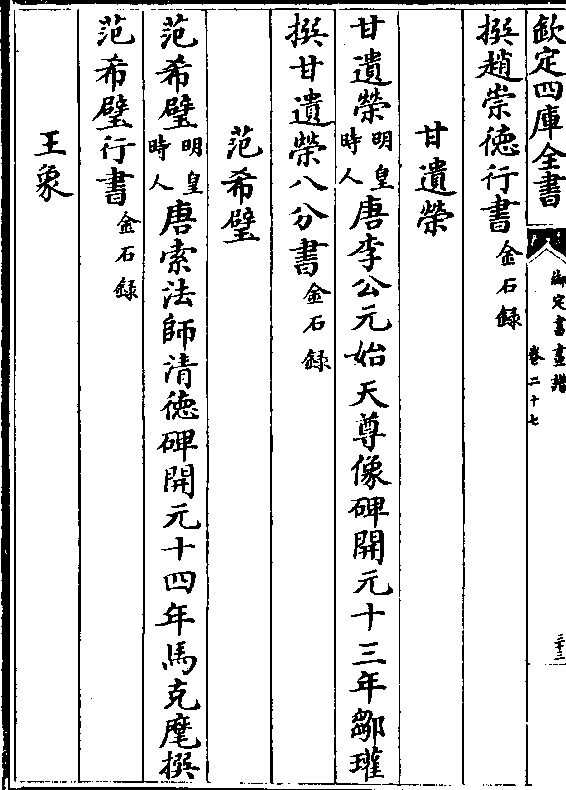 欽定四庫全書
御定書畫譜
卷二十七
三十二
撰趙崇徳行書金石録
甘遺榮
甘遺榮明皇時人唐李公元始天尊像碑開元十三年鄒瓘
撰甘遺榮八分書金石録
范希璧
范希璧明皇時人唐索法師清徳碑開元十四年馬克麾撰
范希璧行書金石録
王象